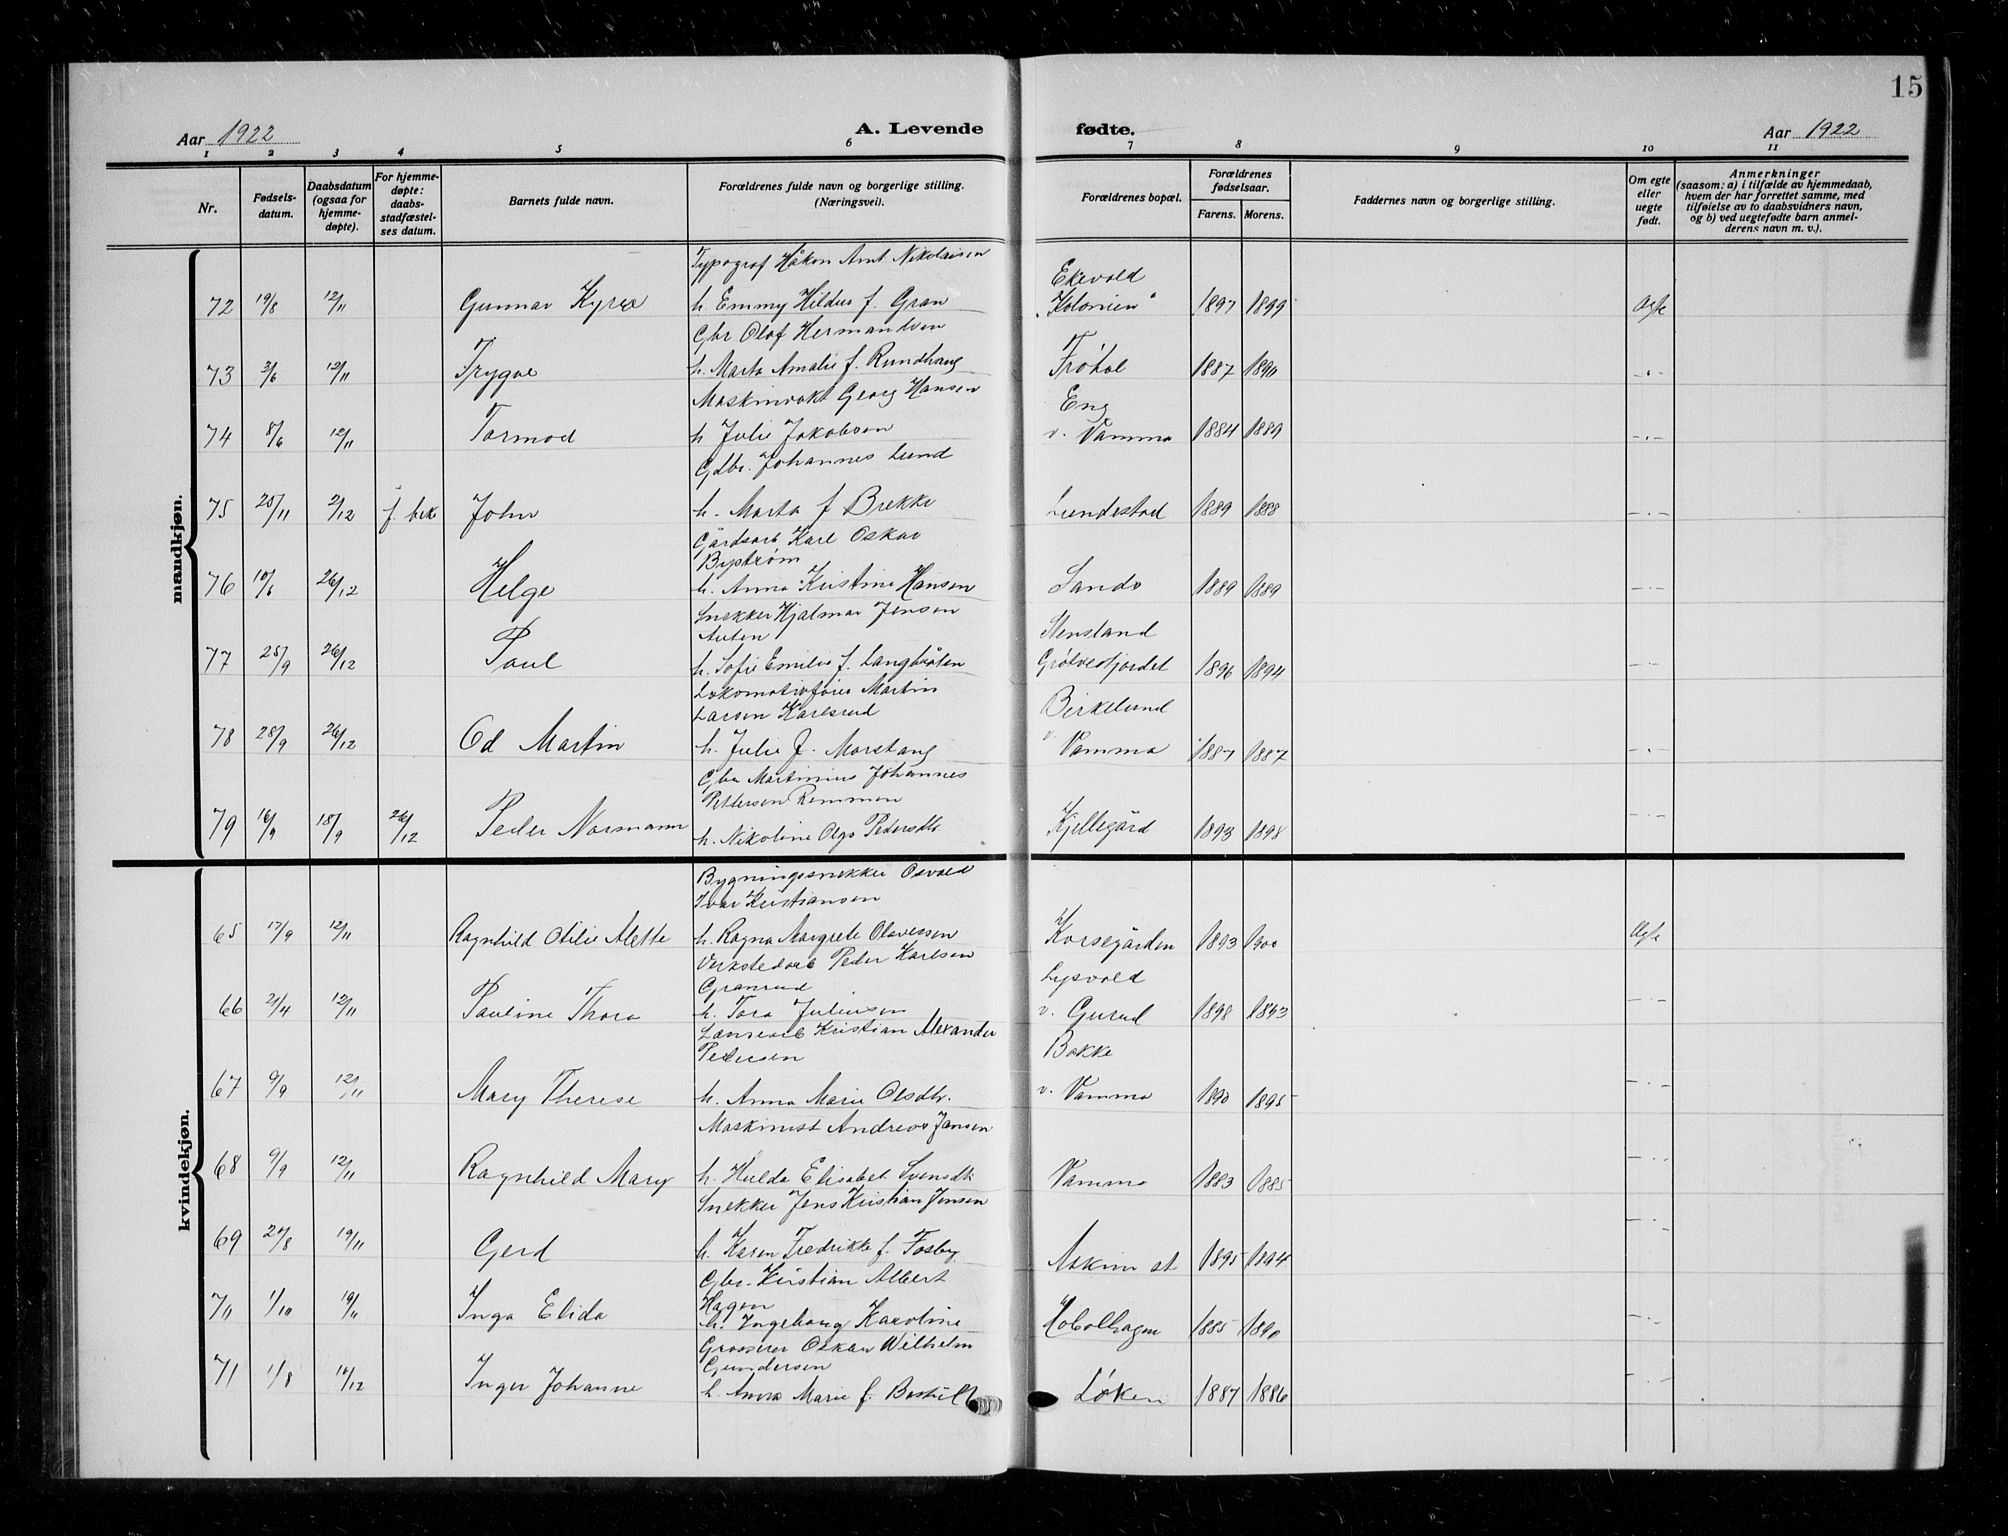 15
Aar 1922 A. Levende fødte. Aar 1922
1 2 3 4 5 6 7 8 9 10 11
Nr.
Fødsels-
datum.
Daabsdatum
(ogsaa for
hjemme-
døpte).
For hjemme-
døpte:
daabs-
stadfæstel-
ses datum.
Barnets fulde navn.
Forældrenes fulde navn og borgerlige stilling.
(Næringsvei).
Forældrenes bopæl.
Forældrenes
fødselsaar.
Farens. Morens.
Faddernes navn og borgerlige stilling.
Om egte
eller
uegte
født.
Anmerkninger
(saasom: a) i tilfælde av hjemmedaab,
hvem der har forrettet samme, med
tilføielse av to daabsvidners navn,
og b) ved uegtefødte barn anmel-
derens navn m. v.).
mandkjøn.
Typograf Håkon Arnt Nikolaisen
Ekevold
72 19/8 12/11 Gunnar h. Emmy Hildur f. Gran "Kolonien" 1897 1899 Ægte
Gbr Olof Hermansen
73 3/6 12/11 Trygve h. Marta Amalie f. Rundhaug Frøtol 1887 1890 -"-
Maskinvakt Georg Hansen
Eng
74 8/6 12/11 Tormod h Julie Jakobsen v. Vamma 1884 1889 -"-
Gdbr. Johannes Lund
75 25/11 2/12 John h. Marta f Brekke Lundestad 1889 1888 -"-
Gårdsarb Karl Oskar
Bystrøm
76 10/6 26/12 Helge h. Anna Kristine Hansen Sando 1889 1889 -"-
Snekker Hjalmar Jensen
Auten
Stensland
77 25/9 26/12 Paul h. Sofie Emilie f. Langbråten Grøtvedtjordet 1896 1894 -"-
Lokomotivfører Martin
Larsen Karlsrud
Birkelund
78 28/9 26/12 Od Martin h. Julie f. Morstang v. Vamma 1887 1887 -"-
Gbr Martinius Johannes
Pettersen Remmen
79 16/9 18/9 26/12 Peder Normann h. Nikoline Olga Pedersdtr Kjellegård 1893 1898 -"-
kvindekjøn.
Bygningssnekker Osvald
Ivar Kristiansen
65 17/9 12/11 Ragnhild Otilie Alette h. Ragna Margrete Olavessen Korsegården 1893 1900 Ægte
Verkstedarb Peder Karlsen
Granrud
Lysvold
66 21/4 12/11 Pauline Thora h. Tora Juliussen v. Gurud 1898 -"-
Lænsearb Kristian Alexander
Pedersen
Bakke
67 9/9 12/11 Mary Therese h. Anna Marie Olsdtr. v. Vamma 1890 1895 -"-
Maskinist Andreas Jansen
68 9/9 12/11 Ragnhild Mary h. Hulda Elisabet Svensdtr Vamma 1883 1885 -"-
Snekker Jens Kristian Jensen
69 27/8 19/11 Gerd h. Karen Fredrikke f. Fosby Askim st 1895 1894 -"-
Gbr. Kristian Albert
Hagen
70 1/10 19/11 Inga Elida h. Ingeborg Karoline Hobolhagen 1885 1890 -"-
Grosserer Oskar Wilhelm
Gundersen
71 1/8 10/12 Inger Johanne h. Anna Marie f. Løken 1887 1886